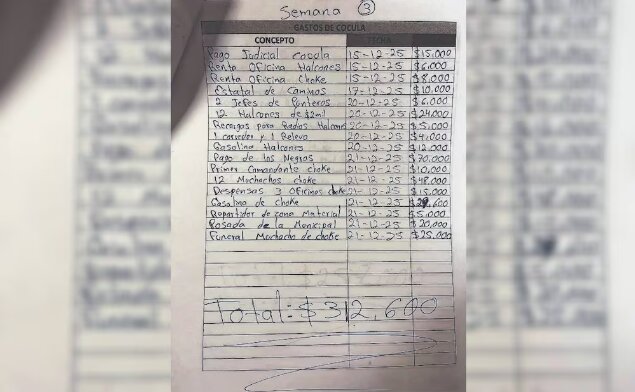 Semana 3
GASTOS DE COCULA
CONCEPTO FECHA
Pago Judicial Cocula 15-12-25 $15.000
Renta Oficina Halcones 15-12-25 $6.000
Renta Oficina Choke 15-12-25 $8.000
Estatal de Caminos 17-12-25 $10.000
2 Jefes de Punteros 20-12-25 $6.000
12 Halcones de $2mil 20-12-25 $24.000
Recargas para Radios Halcones 20-12-25 $5.000
1 cocinera y 1 Relevo 20-12-25 $4.000
Gasolina Halcones 20-12-25 $12.000
Pago de los Negras 21-12-25 $70.000
Primer Comandante choke 21-12-25 $10.000
12 Muchachos choke 21-12-25 $48.000
Despensas 3 Oficinas choke 21-12-25 $15.000
Gasolina de choke 21-12-25 $29.600
Repartidor de zona Material 21-12-25 $5.000
Posada de la Municipal 21-12-25 $20.000
Funeral Muchacho de choke 21-12-25 $25.000
Total: $312,600